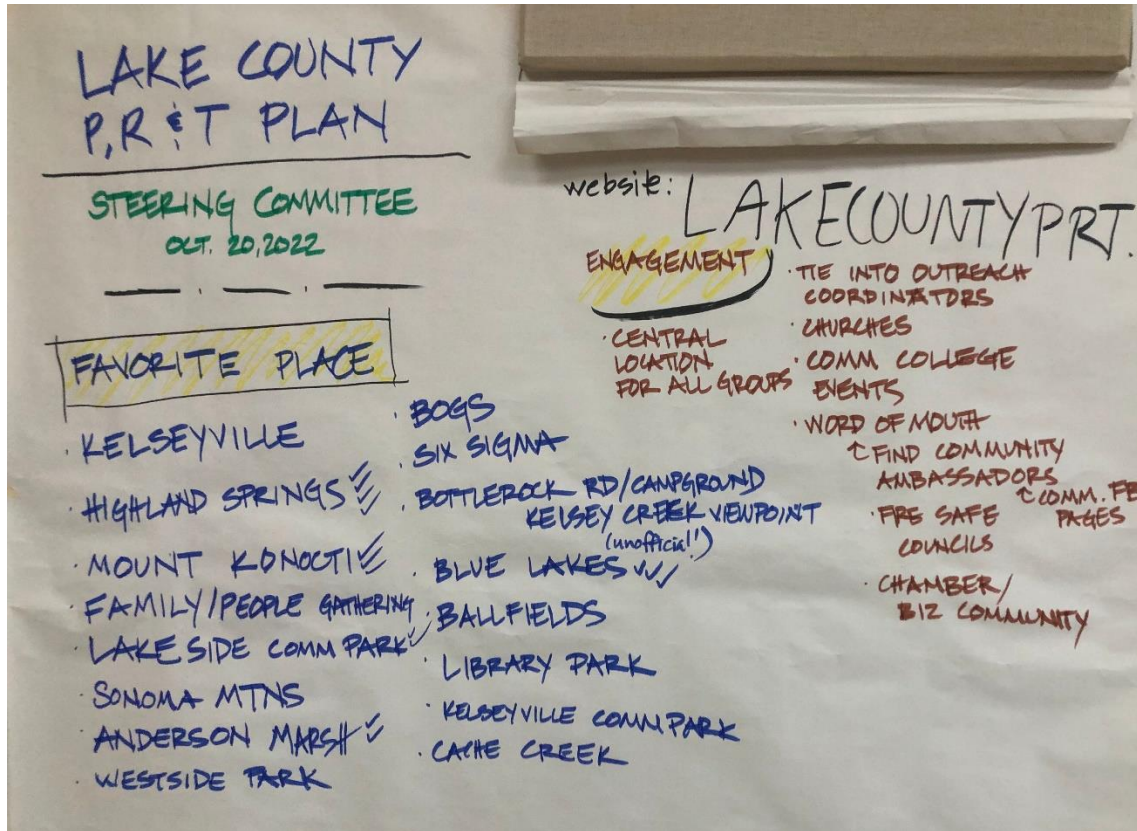 LAKE COUNTY
P,R & T PLAN
STEERING COMMITTEE
OCT. 20, 2022
FAVORITE PLACE
· KELSEYVILLE
· HIGHLAND SPRINGS ✓✓✓
· MOUNT KONOCTI ✓✓
· FAMILY/PEOPLE GATHERING
· LAKESIDE COMM PARK ✓
· SONOMA MTNS
· ANDERSON MARSH ✓✓
· WESTSIDE PARK
· BOGS
· SIX SIGMA
· BOTTLEROCK RD/CAMPGROUND
KELSEY CREEK VIEWPOINT
(unofficial!!)
· BLUE LAKES ✓✓✓
· BALLFIELDS
· LIBRARY PARK
· KELSEYVILLE COMM PARK
· CACHE CREEK
website: LAKECOUNTYPRT.
ENGAGEMENT
· CENTRAL
LOCATION
FOR ALL GROUPS
· TIE INTO OUTREACH
COORDINATORS
· CHURCHES
· COMM COLLEGE
EVENTS
· WORD OF MOUTH
↑ FIND COMMUNITY
AMBASSADORS
↑ COMM. FB
PAGES
· FIRE SAFE
COUNCILS
· CHAMBER/
BIZ COMMUNITY